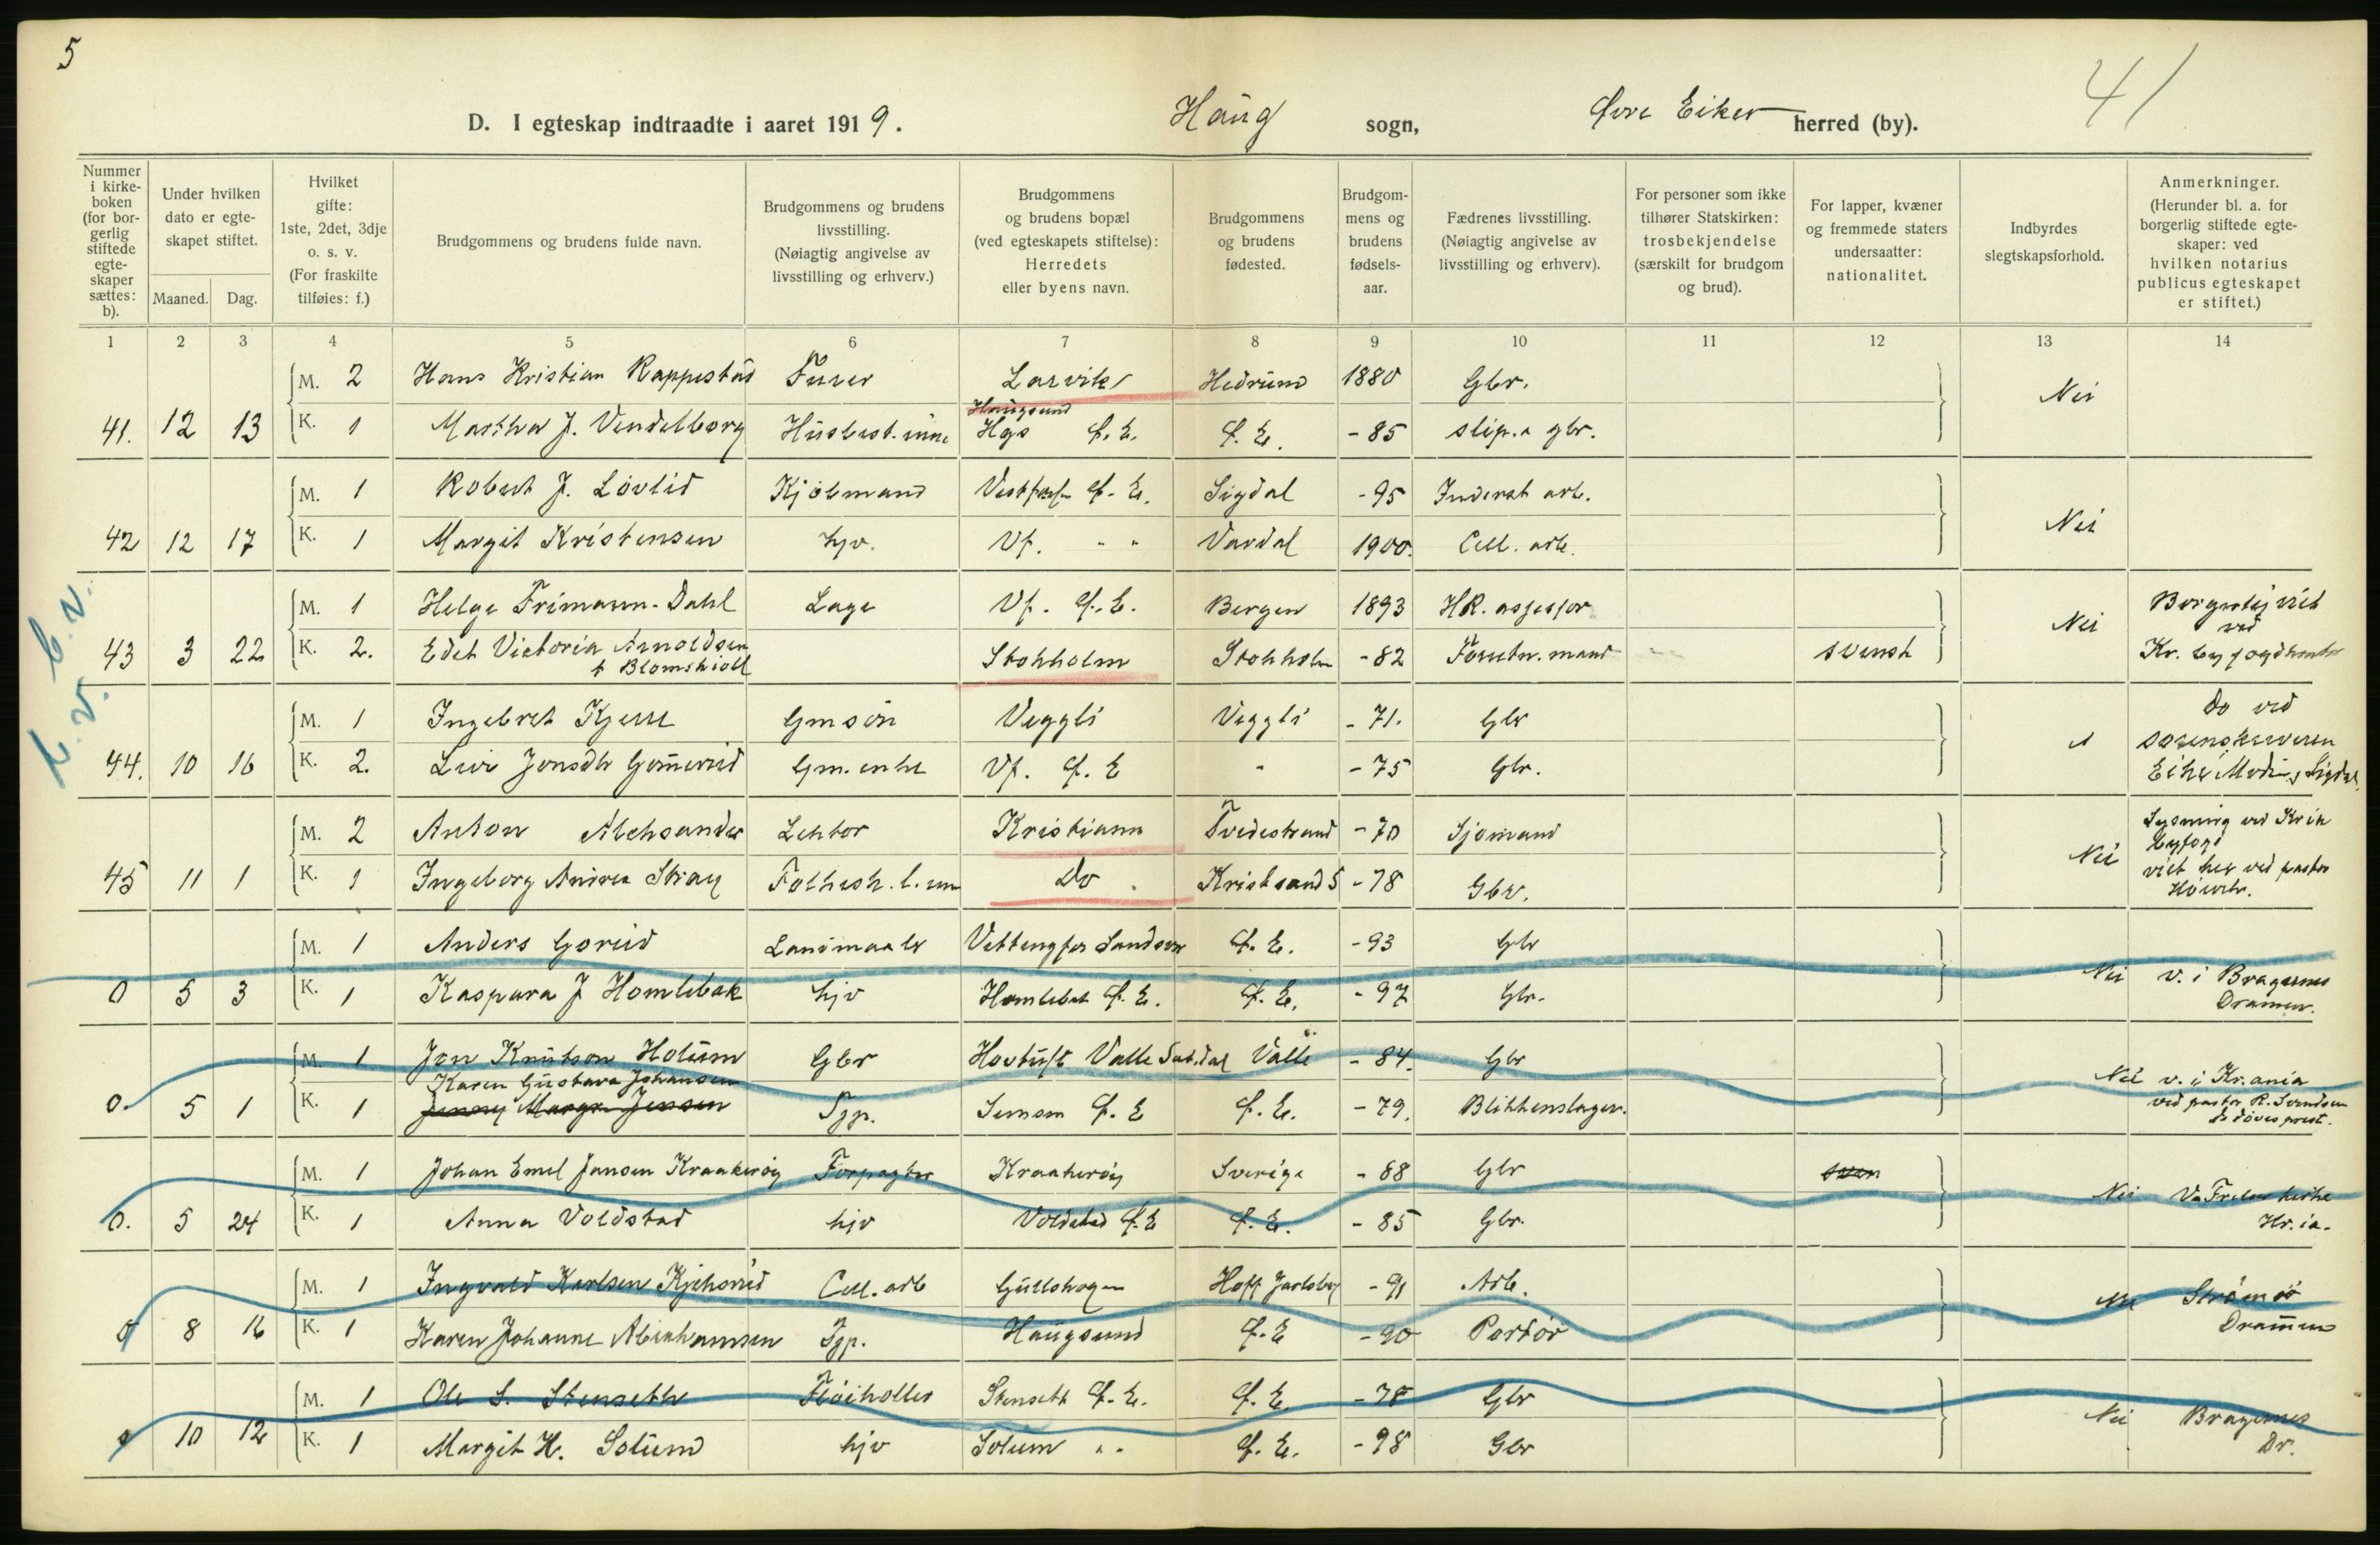 5
D. I egteskap indtraadte i aaret 1919. Haug sogn, Øvre Eiker herred (by).
41
Nummer i kirkeboken (for borgerlig stiftede egteskaper sættes: b).
Under hvilken dato er egteskapet stiftet.
Maaned. Dag.
Hvilket gifte: 1ste, 2det, 3dje o. s. v. (For fraskilte tilføies: f.)
Brudgommens og brudens fulde navn.
Brudgommens og brudens livsstilling. (Nøiagtig angivelse av livsstilling og erhverv.)
Brudgommens og brudens bopæl (ved egteskapets stiftelse): Herredets eller byens navn.
Brudgommens og brudens fødested.
Brudgommens og brudens fødselsaar.
Fædrenes livsstilling. (Nøiagtig angivelse av livsstilling og erhverv).
For personer som ikke tilhører Statskirken: trosbekjendelse (særskilt for brudgom og brud).
For lapper, kvæner og fremmede staters undersaatter: nationalitet.
Indbyrdes slegtskapsforhold.
Anmerkninger. (Herunder bl. a. for borgerlig stiftede egteskaper: ved hvilken notarius publicus egteskapet er stiftet.)
1 2 3 4 5 6 7 8 9 10 11 12 13 14
M. 2 Hans Kristian Rappestad Furer Larvik Hedrum 1880 Gbr. Nei
Haugsund
41. 12 13 K. 1 Martha J. Vendelborg Husbest.inne Hgs Ø. E. Ø. E. -85 slip. a gbr.
M. 1 Robert J. Lövlid Kjöbmand Vestfossen Ø. E. Sigdal -95 Inderst arb. Nei
42 12 17 K. 1 Margit Kristensen hjv. Vf. " " Vardal 1900. Cell. arb.
M. 1 Helge Frimann-Dahl Læge Vf. Ø. E. Bergen 1893 HR. assessor Nei Borgerlig viet ved
43 3 22 K. 2. Edet Victoria Arnoldsen f Blomskiöll Stokholm Stokholm -82 Forretn. mand svensk Kr. byfogdembete
b. v. b. v.
M. 1 Ingebret Kjerre Gmsön Veggli Veggli -71. Gbr Do ved
44. 10 16 K. 2. Live Jonsdtr Gommerud Gm. enke Vf. Ø. E " -75 Gbr. sorenskriveren Eiker Modum, Sigdal.
M. 2 Anton Aleksander Lektor Kristiania Tvedestrand -70 Sjömand Nei Lysning ved Kria byfogd
45 11 1 K. 1 Ingeborg Andrea Stray Folkesk. l. inn Do. Kristsand S -78 Gbr. viet her ved pastor
M. 1 Anders Gorud Landmaaler Ø. E. -93 Gbr
0 5 3 K. 1 Kaspara J Homlebak hjv Homlebak Ø. E. Ø. E. -97 Gbr. Nei v. i Bragernes Drammen.
M. 1 Jon Knutson Holum Gbr Hovtuft Valle Sætesdal Valle -84. Gbr
Karen Gustava Johansen
0. 5 1 K. 1 Jenny Margr. Jensen Tjp. Semsm Ø. E Ø. E. -79. Blikkenslager. Nei v. i Kr.ania ved pastor R. Svendsen de döves prest.
M. 1 Johan Emel Jansen Kraakeröy Forpagter Kraakeröy Sverige -88 Gbr sven
0. 5 24 K. 1 Anna Voldstad hjv Voldstad Ø. E Ø. E. -85 Gbr. Nei V. Frelser kirke Kr.ia.
M. 1 Ingvald Karlsen Kjekorud Cell. arb Gullskogen Hoff Jarlsberg -91 Arb. Nei Strömsö
0 8 16 K. 1 Karen Johanne Abrahamsen Tjp. Haugsund Ø. E -90 Portör Drammen
M. 1 Ole S. Stenseth Flöiholler Stenseth Ø. E. Ø. E. -78 Gbr
0 10 12 K. 1 Margit H. Solum hjv Solum " " Ø. E. -98 Gbr Nei Bragernes Dr.